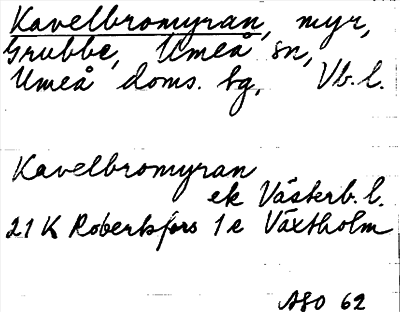 Kavelbromyran, myr,
Grubbe, Umeå sn,
Umeå doms. sg, Vb. l.
Kavelbromyran
ek Västerb. l.
21 K Robertsfors 1e Växtholm
ASO 62